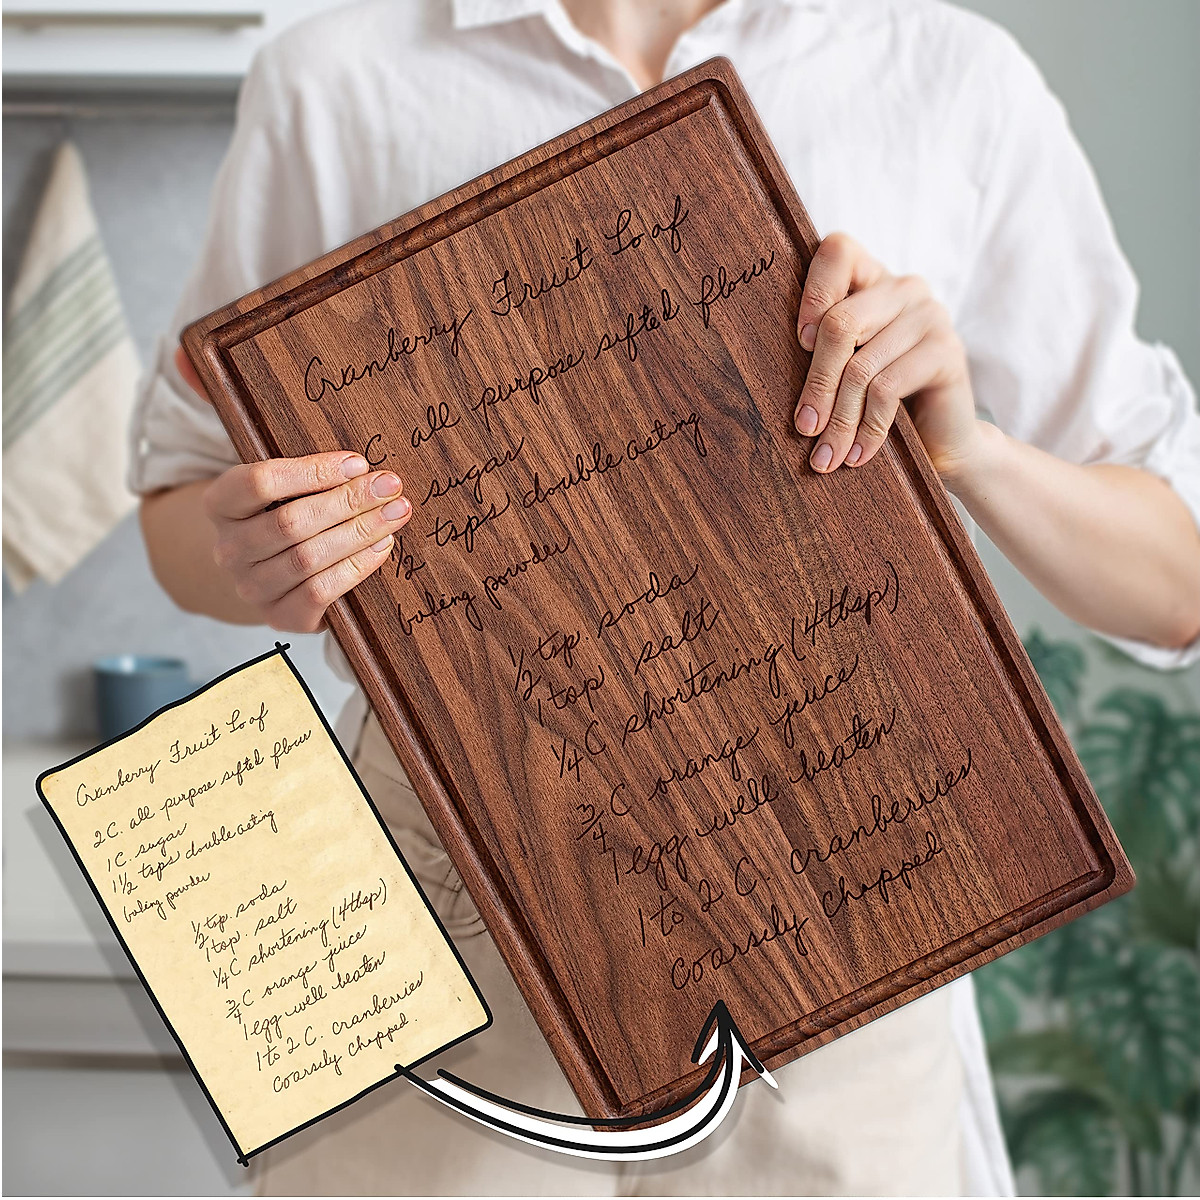 Cranberry Fruit Loaf
C. all purpose sifted flour
sugar
1/2 tsps double acting
baking powder
1/2 tsp. soda
1 tsp salt
1/4 C shortening (4 tbsp)
3/4 C orange juice
1 egg well beaten
1 to 2 C. cranberries
coarsely chopped
Cranberry Fruit Loaf
2 C. all purpose sifted flour
1 C. sugar
1 1/2 tsps double acting
baking powder
1/2 tsp. soda
1 tsp. salt
1/4 C shortening (4 tbsp)
3/4 C orange juice
1 egg well beaten
1 to 2 C. cranberries
coarsely chopped.